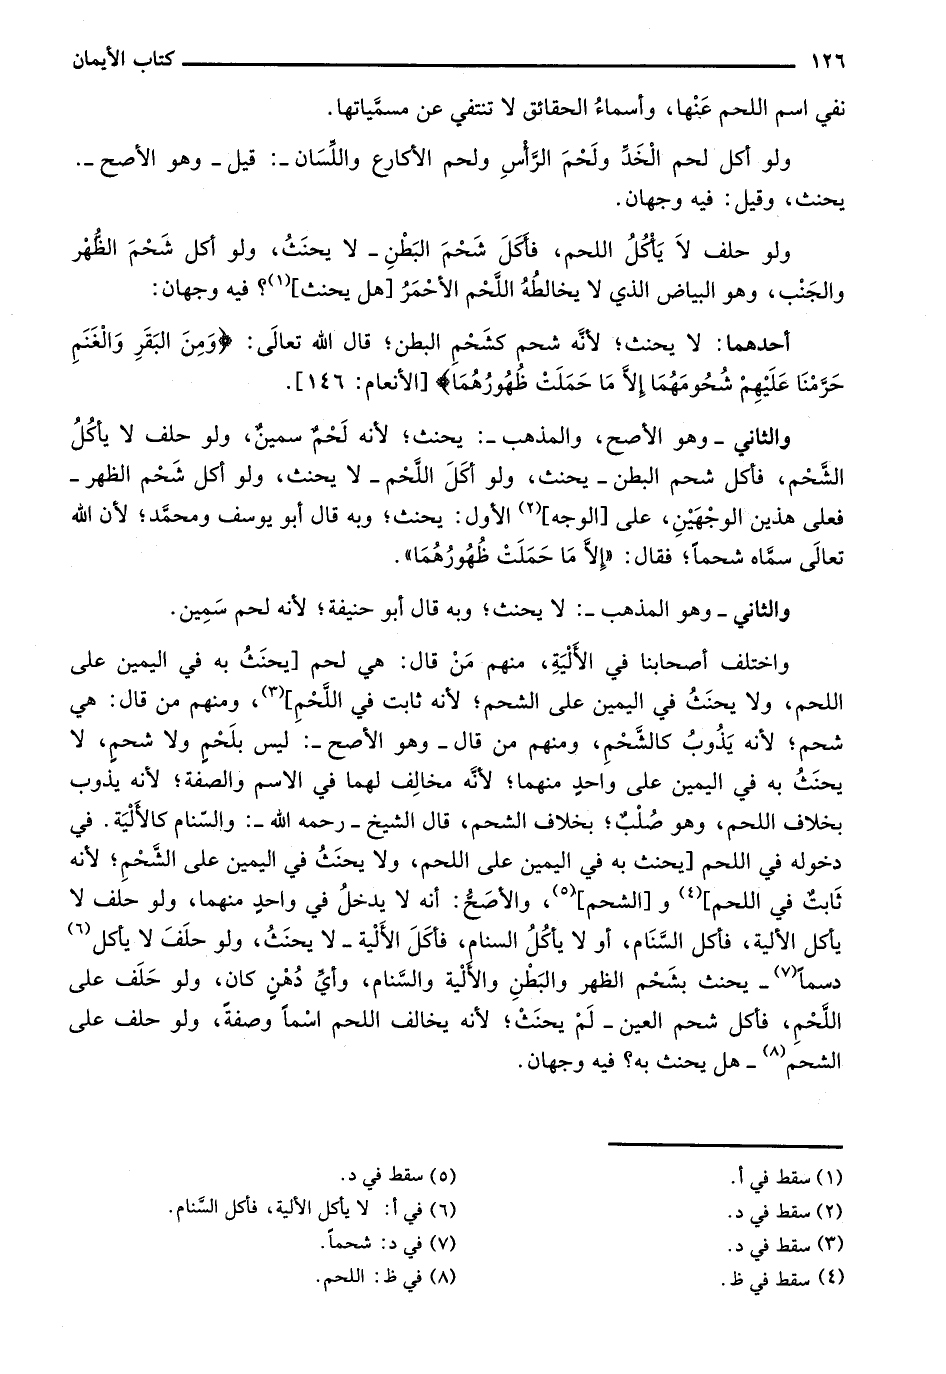 ١٢٦ كتاب الأيمان
نفي اسم اللحم عَنْها، وأسماءُ الحقائق لا تنتفي عن مسمَّياتها.
ولو أكل لحم الْخَدِّ ولَحْمَ الرَّأْسِ ولحم الأكارع واللِّسَان ـ: قيل ـ وهو الأصح ـ.
يحنث، وقيل: فيه وجهان.
ولو حلف لاَ يَأْكُلُ اللحم، فأَكَلَ شَحْمَ البَطْنِ ـ لا يحنَثُ، ولو أكل شَحْمَ الظُّهْر
والجَنْب، وهو البياض الذي لا يخالطُهُ اللَّحْم الأحْمَرُ [هل يحنث](١)؟ فيه وجهان:
أحدهما: لا يحنث؛ لأنَّه شحم كشَحْمِ البطن؛ قال الله تعالَى: ﴿وَمِنَ البَقَرِ وَالْغَنَمِ
حَرَّمْنَا عَلَيْهِمْ شُحُومَهُمَا إِلاَّ مَا حَمَلَتْ ظُهُورُهُمَا﴾ [الأنعام: ١٤٦].
والثاني ـ وهو الأصح، والمذهب ـ: يحنث؛ لأنه لَحْمٌ سمينٌ، ولو حلف لا يأكُلُ
الشَّحْم، فأكل شحم البطن ـ يحنث، ولو أكَلَ اللَّحْم ـ لا يحنث، ولو أكل شَحْم الظهر ـ
فعلى هذين الوجْهَيْنِ، على [الوجه](٢) الأول: يحنث؛ وبه قال أبو يوسف ومحمَّد؛ لأن الله
تعالَى سمَّاه شحماً؛ فقال: «إِلاَّ مَا حَمَلَتْ ظُهُورُهُمَا».
والثاني ـ وهو المذهب ـ: لا يحنث؛ وبه قال أبو حنيفة؛ لأنه لحم سَمِين.
واختلف أصحابنا في الأَلْيَةِ، منهم مَنْ قال: هي لحم [يحنَثُ به في اليمين على
اللحم، ولا يحنَثُ في اليمين على الشحم؛ لأنه ثابت في اللَّحْمِ](٣)، ومنهم من قال: هي
شحم؛ لأنه يَذُوبُ كالشَّحْمِ، ومنهم من قال ـ وهو الأصح ـ: ليس بلَحْمٍ ولا شحمٍ، لا
يحنَثُ به في اليمين على واحدٍ منهما؛ لأنَّه مخالِف لهما في الاسم والصفة؛ لأنه يذوب
بخلاف اللحم، وهو صُلْبٌ؛ بخلاف الشحم، قال الشيخ ـ رحمه الله ـ: والسّنام كالأَلْيَة. في
دخوله في اللحم [يحنث به في اليمين على اللحم، ولا يحنَثُ في اليمين على الشَّحْمِ؛ لأنه
ثَابتٌ في اللحم](٤) و [الشحم](٥)، والأصَحُّ: أنه لا يدخلُ في واحدٍ منهما، ولو حلف لا
يأكل الألية، فأكل السَّنَام، أو لا يأكُلُ السنام، فأكَلَ الأَلْية ـ لا يحنَثُ، ولو حلَفَ لا يأكل(٦)
دسماً(٧) ـ يحنث بشَحْم الظهر والبَطْنِ والأَلْية والسَّنام، وأيِّ دُهْنٍ كان، ولو حَلَف على
اللَّحْمِ، فأكل شحم العين ـ لَمْ يحنَثْ؛ لأنه يخالف اللحم اسْماً وصفةً، ولو حلف على
الشحم(٨) ـ هل يحنث به؟ فيه وجهان.
(١) سقط في أ.
(٢) سقط في د.
(٣) سقط في د.
(٤) سقط في ظ.
(٥) سقط في د.
(٦) في أ: لا يأكل الألية، فأكل السَّنام.
(٧) في د: شحماً.
(٨) في ظ: اللحم.